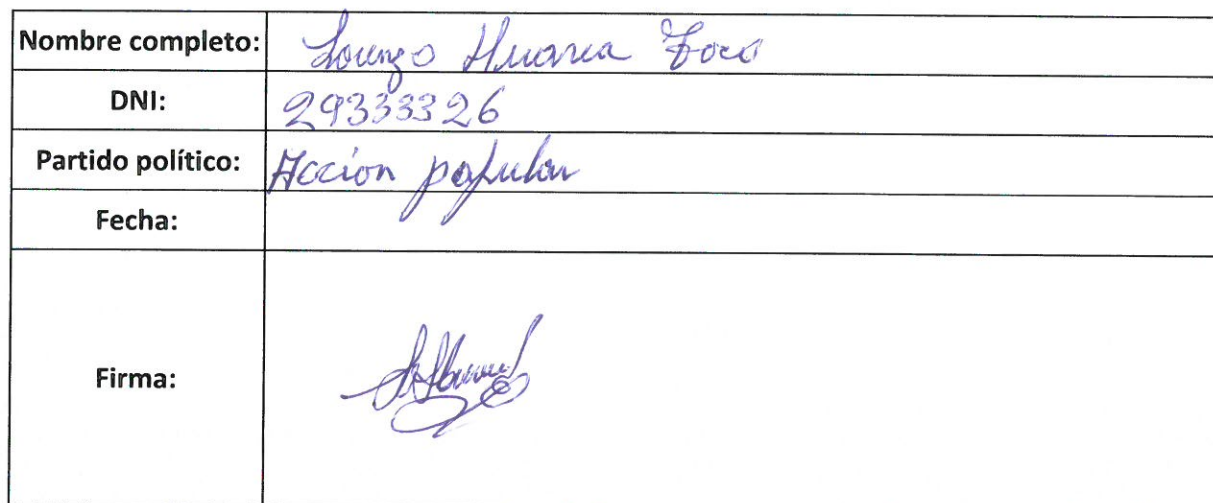 Nombre completo: Lorenzo Huanca
DNI: 29333326
Partido político: Accion popular
Fecha:
Firma: